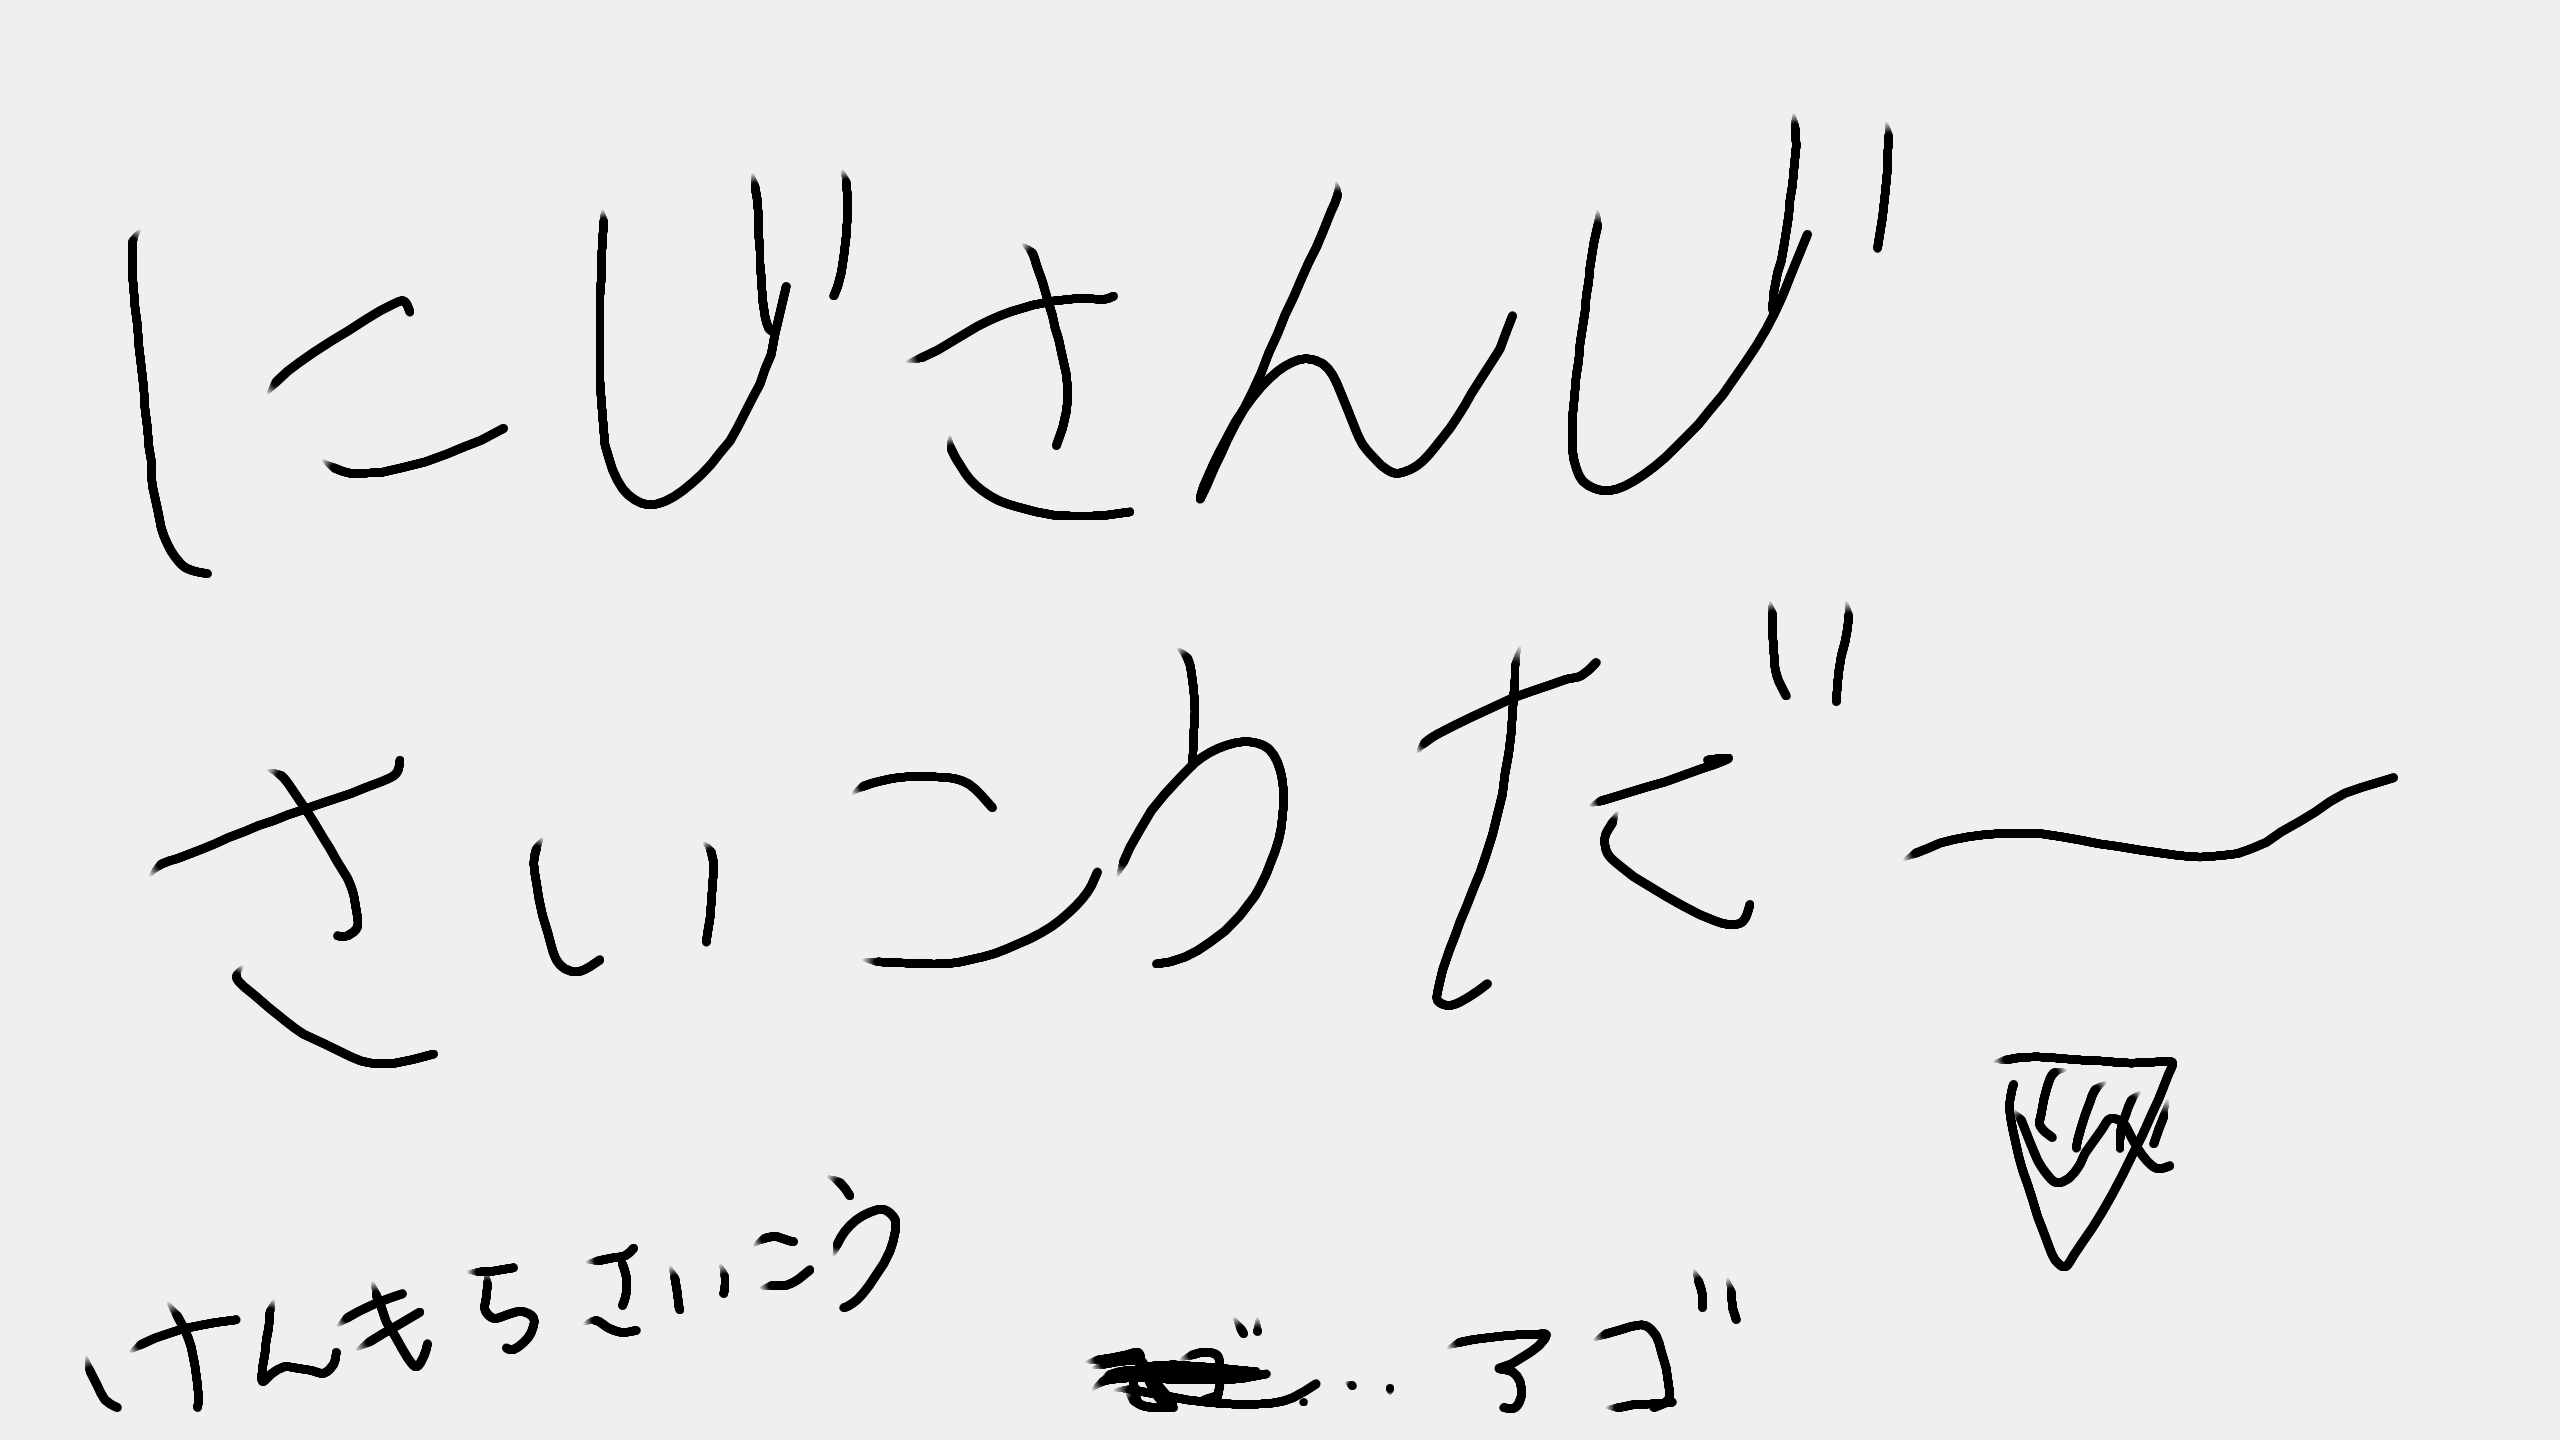 にじさんじ
さいこうだ〜
けんもちさいこう
…アゴ